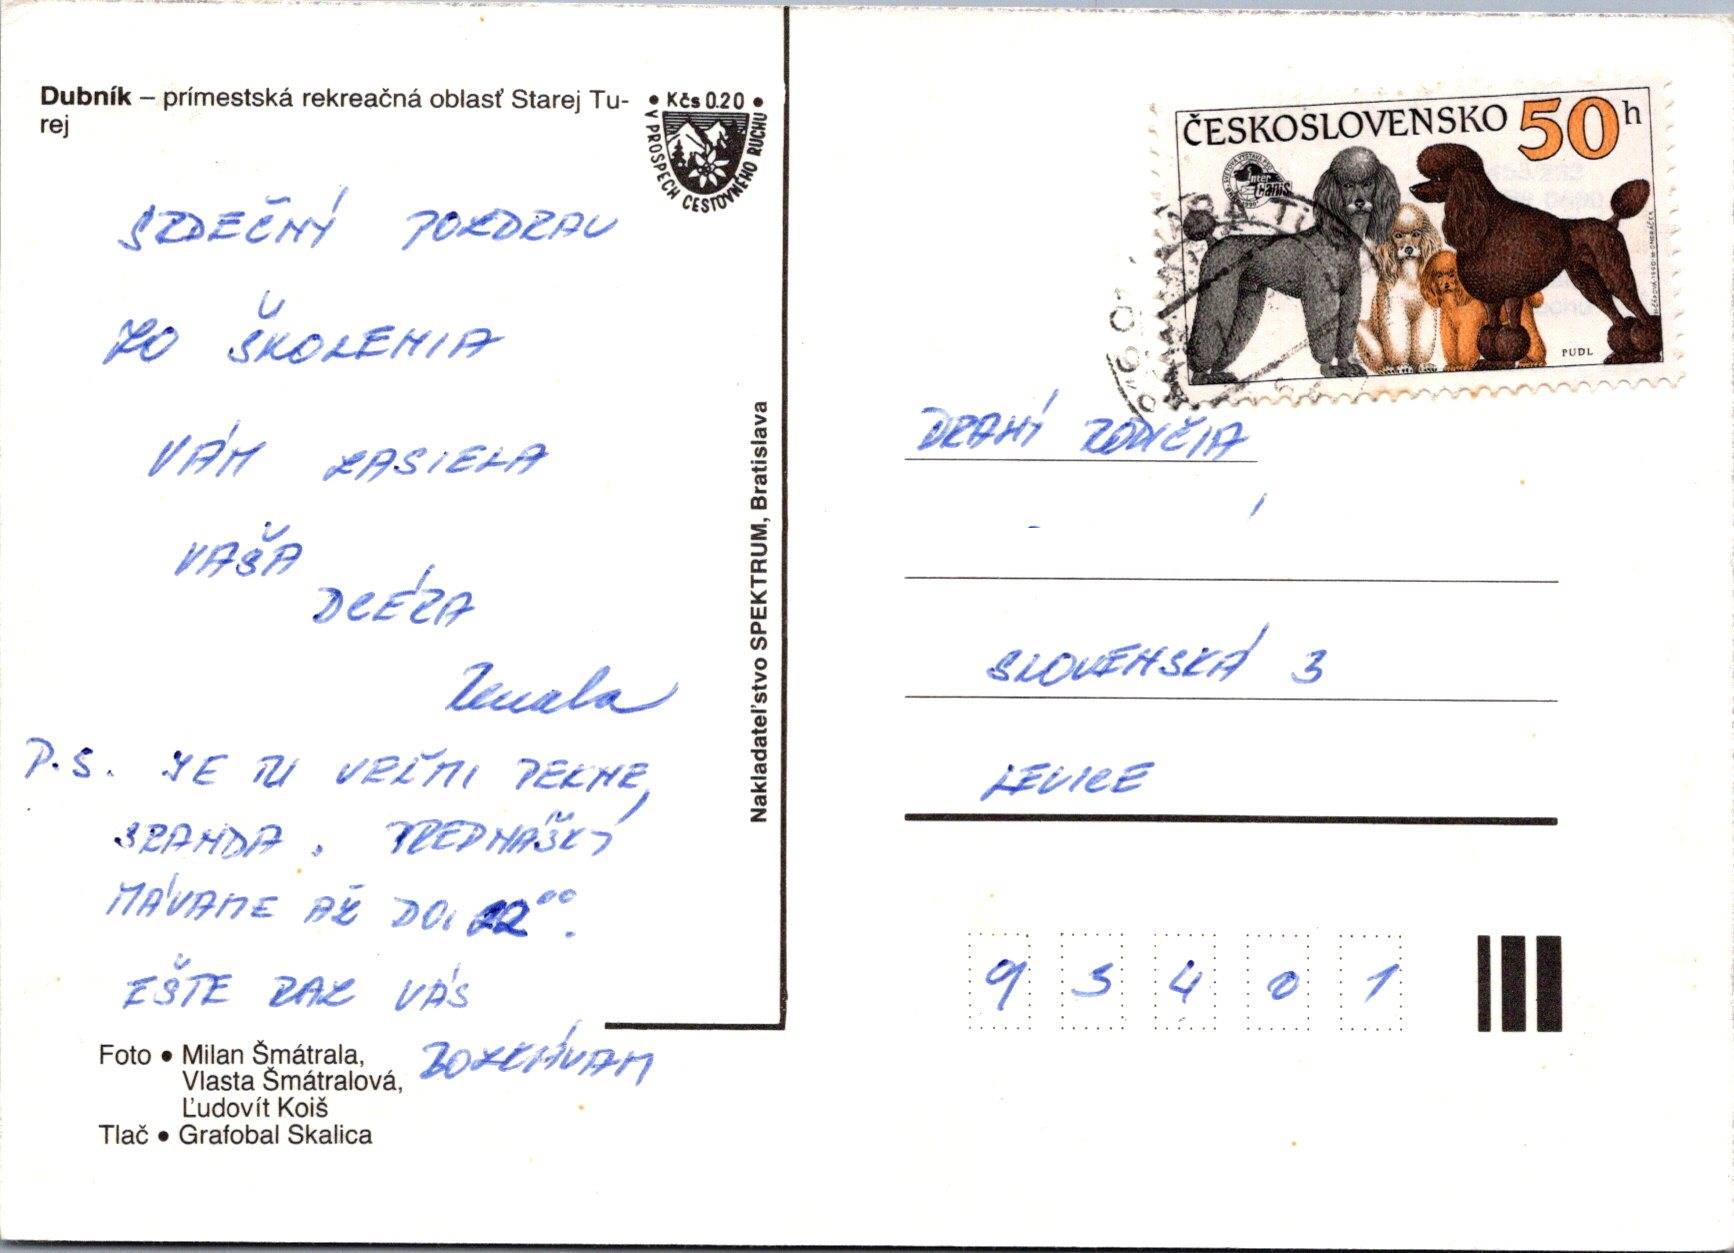 Dubník – prímestská rekreačná oblasť Starej Tu-
rej
• Kčs 0.20 •
V PROSPECH CESTOVNÉHO RUCHU
SRDEČNÝ POZDRAV
ZO ŠKOLENIA
VÁM ZASIELA
VAŠA
DCÉRA
Renata
P.S. JE TU VEĽMI PEKNE,
SRANDA. PREDNÁŠKY
MÁVAME AŽ DO 22⁰⁰.
EŠTE RAZ VÁS
BOZKÁVAM
Foto • Milan Šmátrala,
Vlasta Šmátralová,
Ľudovít Koiš
Tlač • Grafobal Skalica
Nakladateľstvo SPEKTRUM, Bratislava
ČESKOSLOVENSKO 50h
inter canis
PUDL
DRAHÍ RODIČIA
SLOVENSKÁ 3
LEVICE
93401